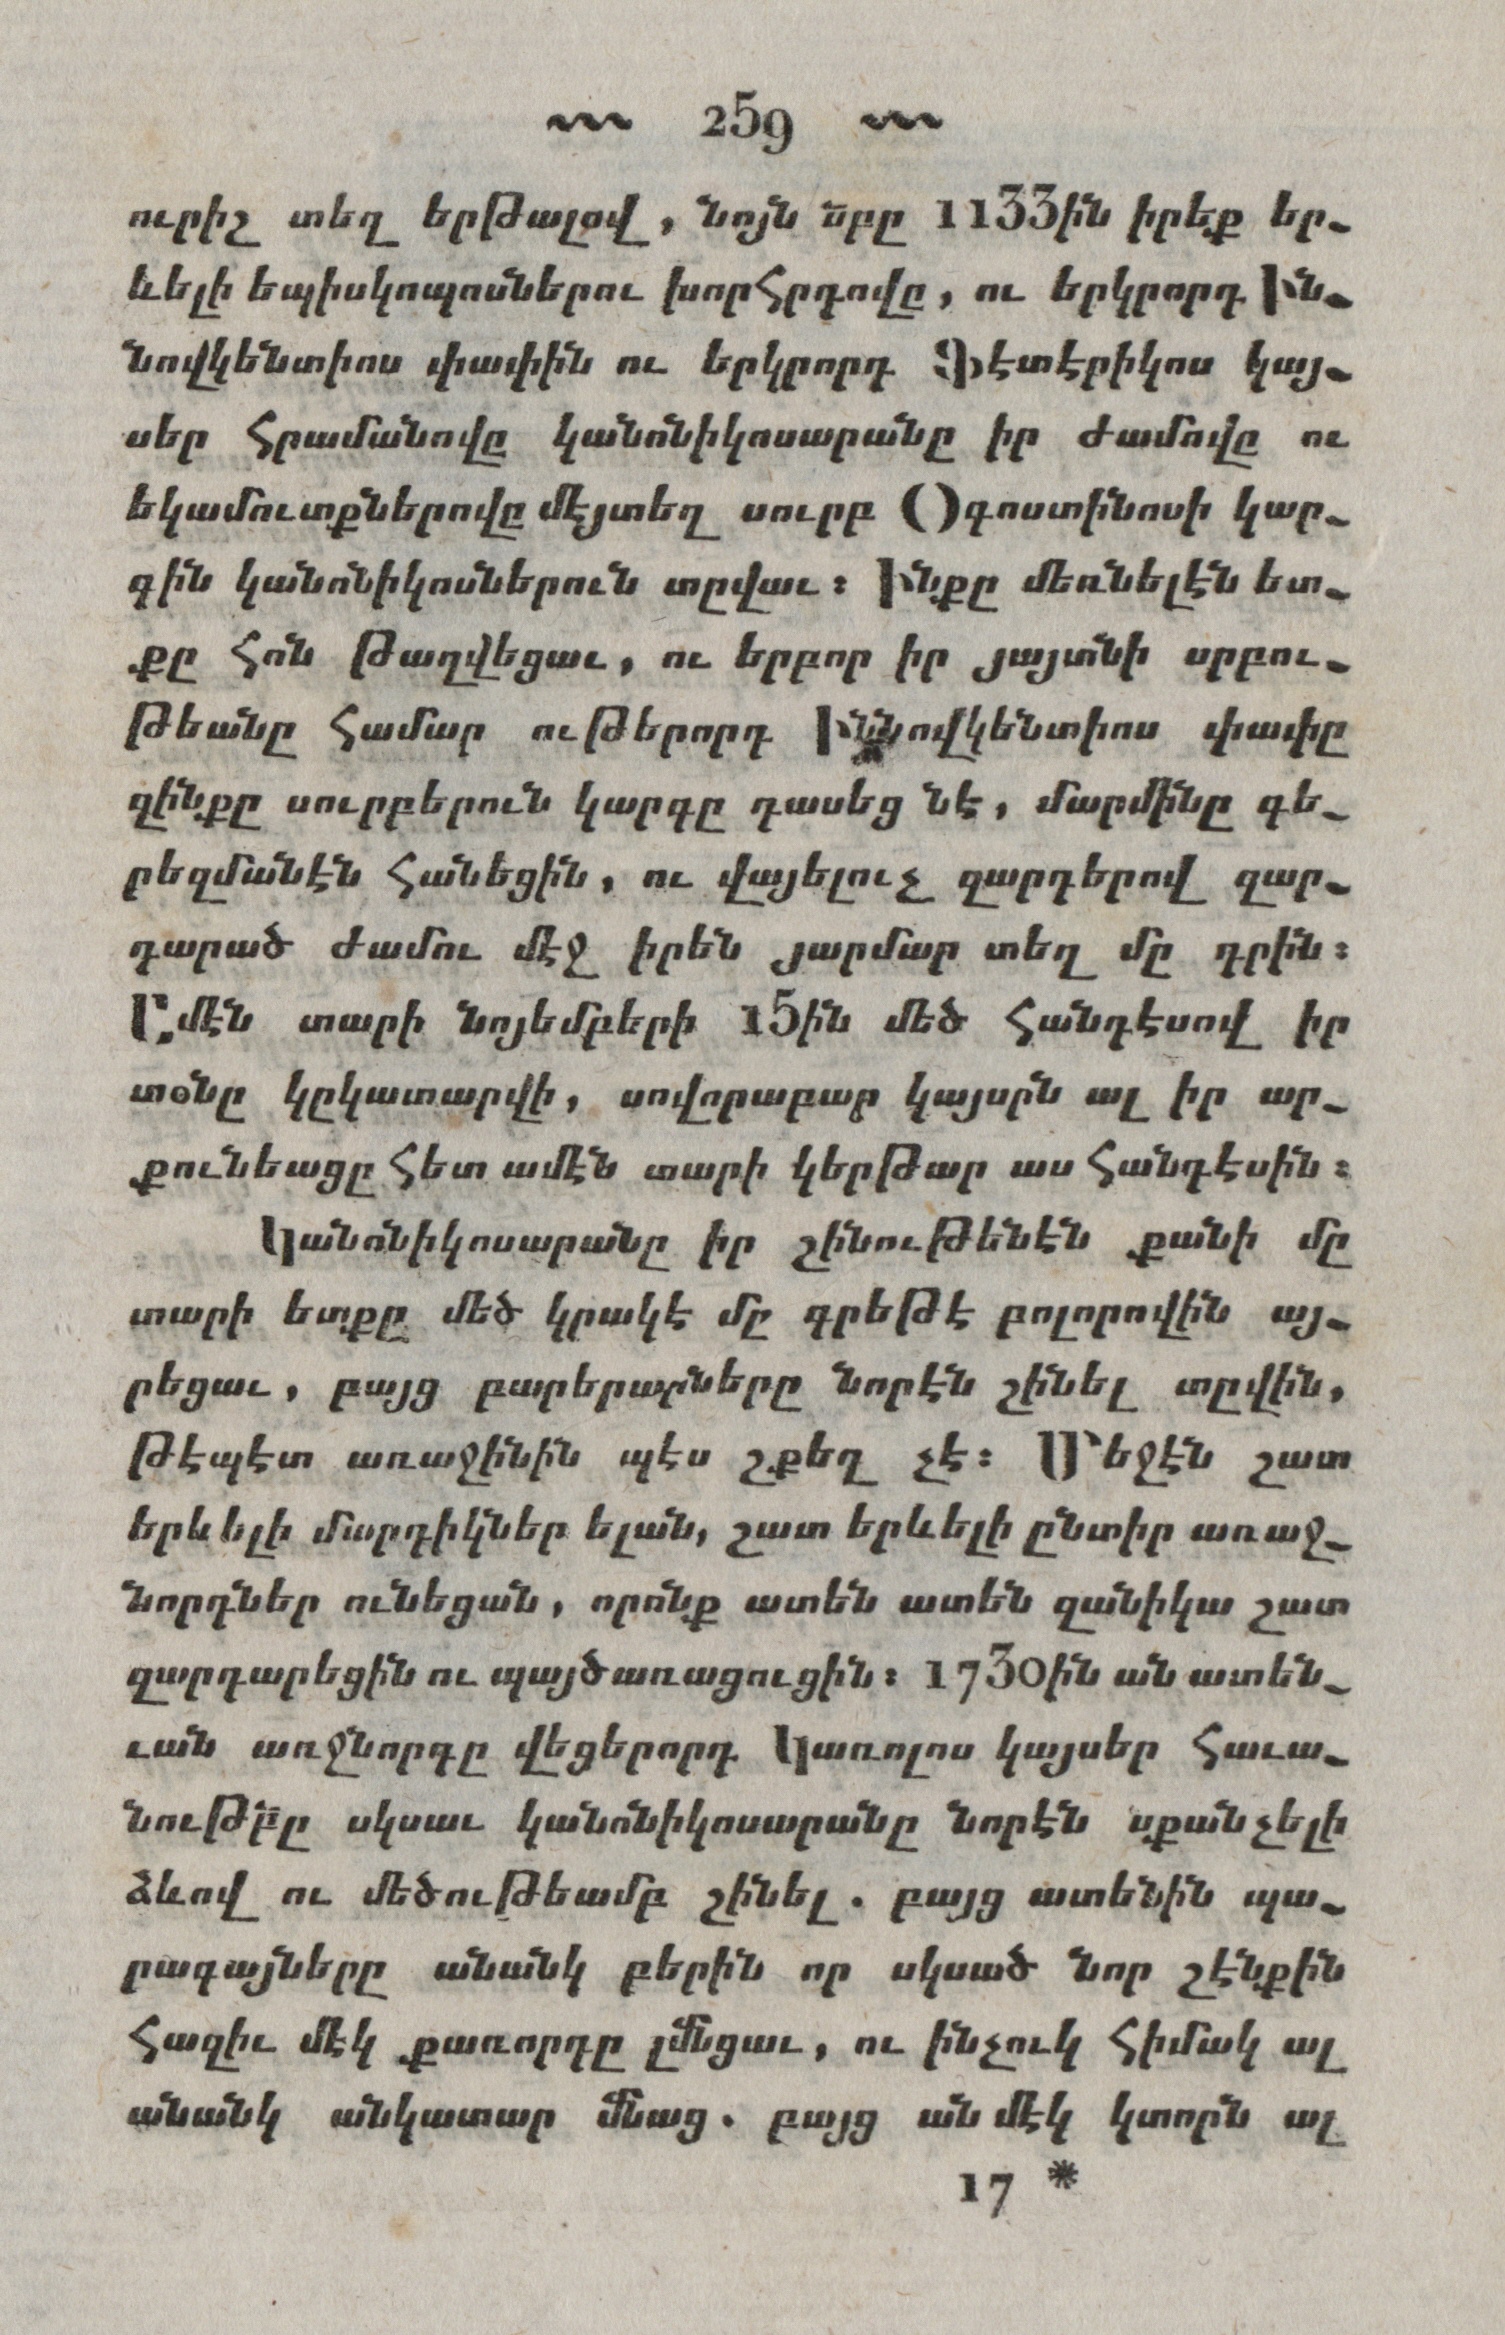 259
ուրիշ տեղ երթալօվ, նոյն սբը 1133ին իրեք եր֊
ևելի եպիսկոպոսներու խորհրդովը, ու երկրորդ Ին֊
նովկենտիոս փափին ու երկրորդ Ֆէտէրիկոս կայ֊
սեր հրամանովը կանոնիկոսարանը իր ժամովը ու
եկամուտքներովը մէյտեղ սուրբ Օգոստինոսի կար֊
գին կանոնիկոսներուն տըվաւ։ Ինքը մեռնելէն ետ֊
քը հոն թաղվեցաւ, ու երբոր իր յայտնի սրբու֊
թեանը համար ութերորդ Իննովկենտիոս փափը
զինքը սուրբերուն կարգը դասեց նէ, մարմինը գե֊
րեզմանէն հանեցին, ու վայելուչ զարդերով զար֊
դարած ժամու մէջ իրեն յարմար տեղ մը դրին։
Ամէն տարի նոյեմբերի 15ին մեծ հանդէսով իր
տօնը կըկատարվի, սովորաբար կայսրն ալ իր ար֊
քունեացը հետ ամէն տարի կերթար աս հանդէսին։
Կանոնիկոսարանը իր շինութենէն քանի մը
տարի ետքը մեծ կրակէ մը գրեթէ բոլորովին այ֊
րեցաւ, բայց բարերարները նորէն շինել տըվին,
թէպէտ առաջինին պէս շքեղ չէ։ Մեջէն շատ
երևելի մարդիկներ ելան, շատ երևելի ընտիր առաջ֊
նորդներ ունեցան, որոնք ատեն ատեն զանիկա շատ
զարդարեցին ու պայծառացուցին։ 1730ին ան ատեն֊
ւան առջնորդը վեցերորդ Կառոլոս կայսեր հաւա֊
նութբը սկսաւ կանոնիկոսարանը նորէն սքանչելի
ձևով ու մեծութեամբ շինել. բայց ատենին պա֊
րագայները անանկ բերին որ սկսած նոր շէնքին
հազիւ մէկ քառորդը լմնցաւ, ու ինչուկ հիմակ ալ
անանկ անկատար մնաց. բայց ան մէկ կտորն ալ
17 *